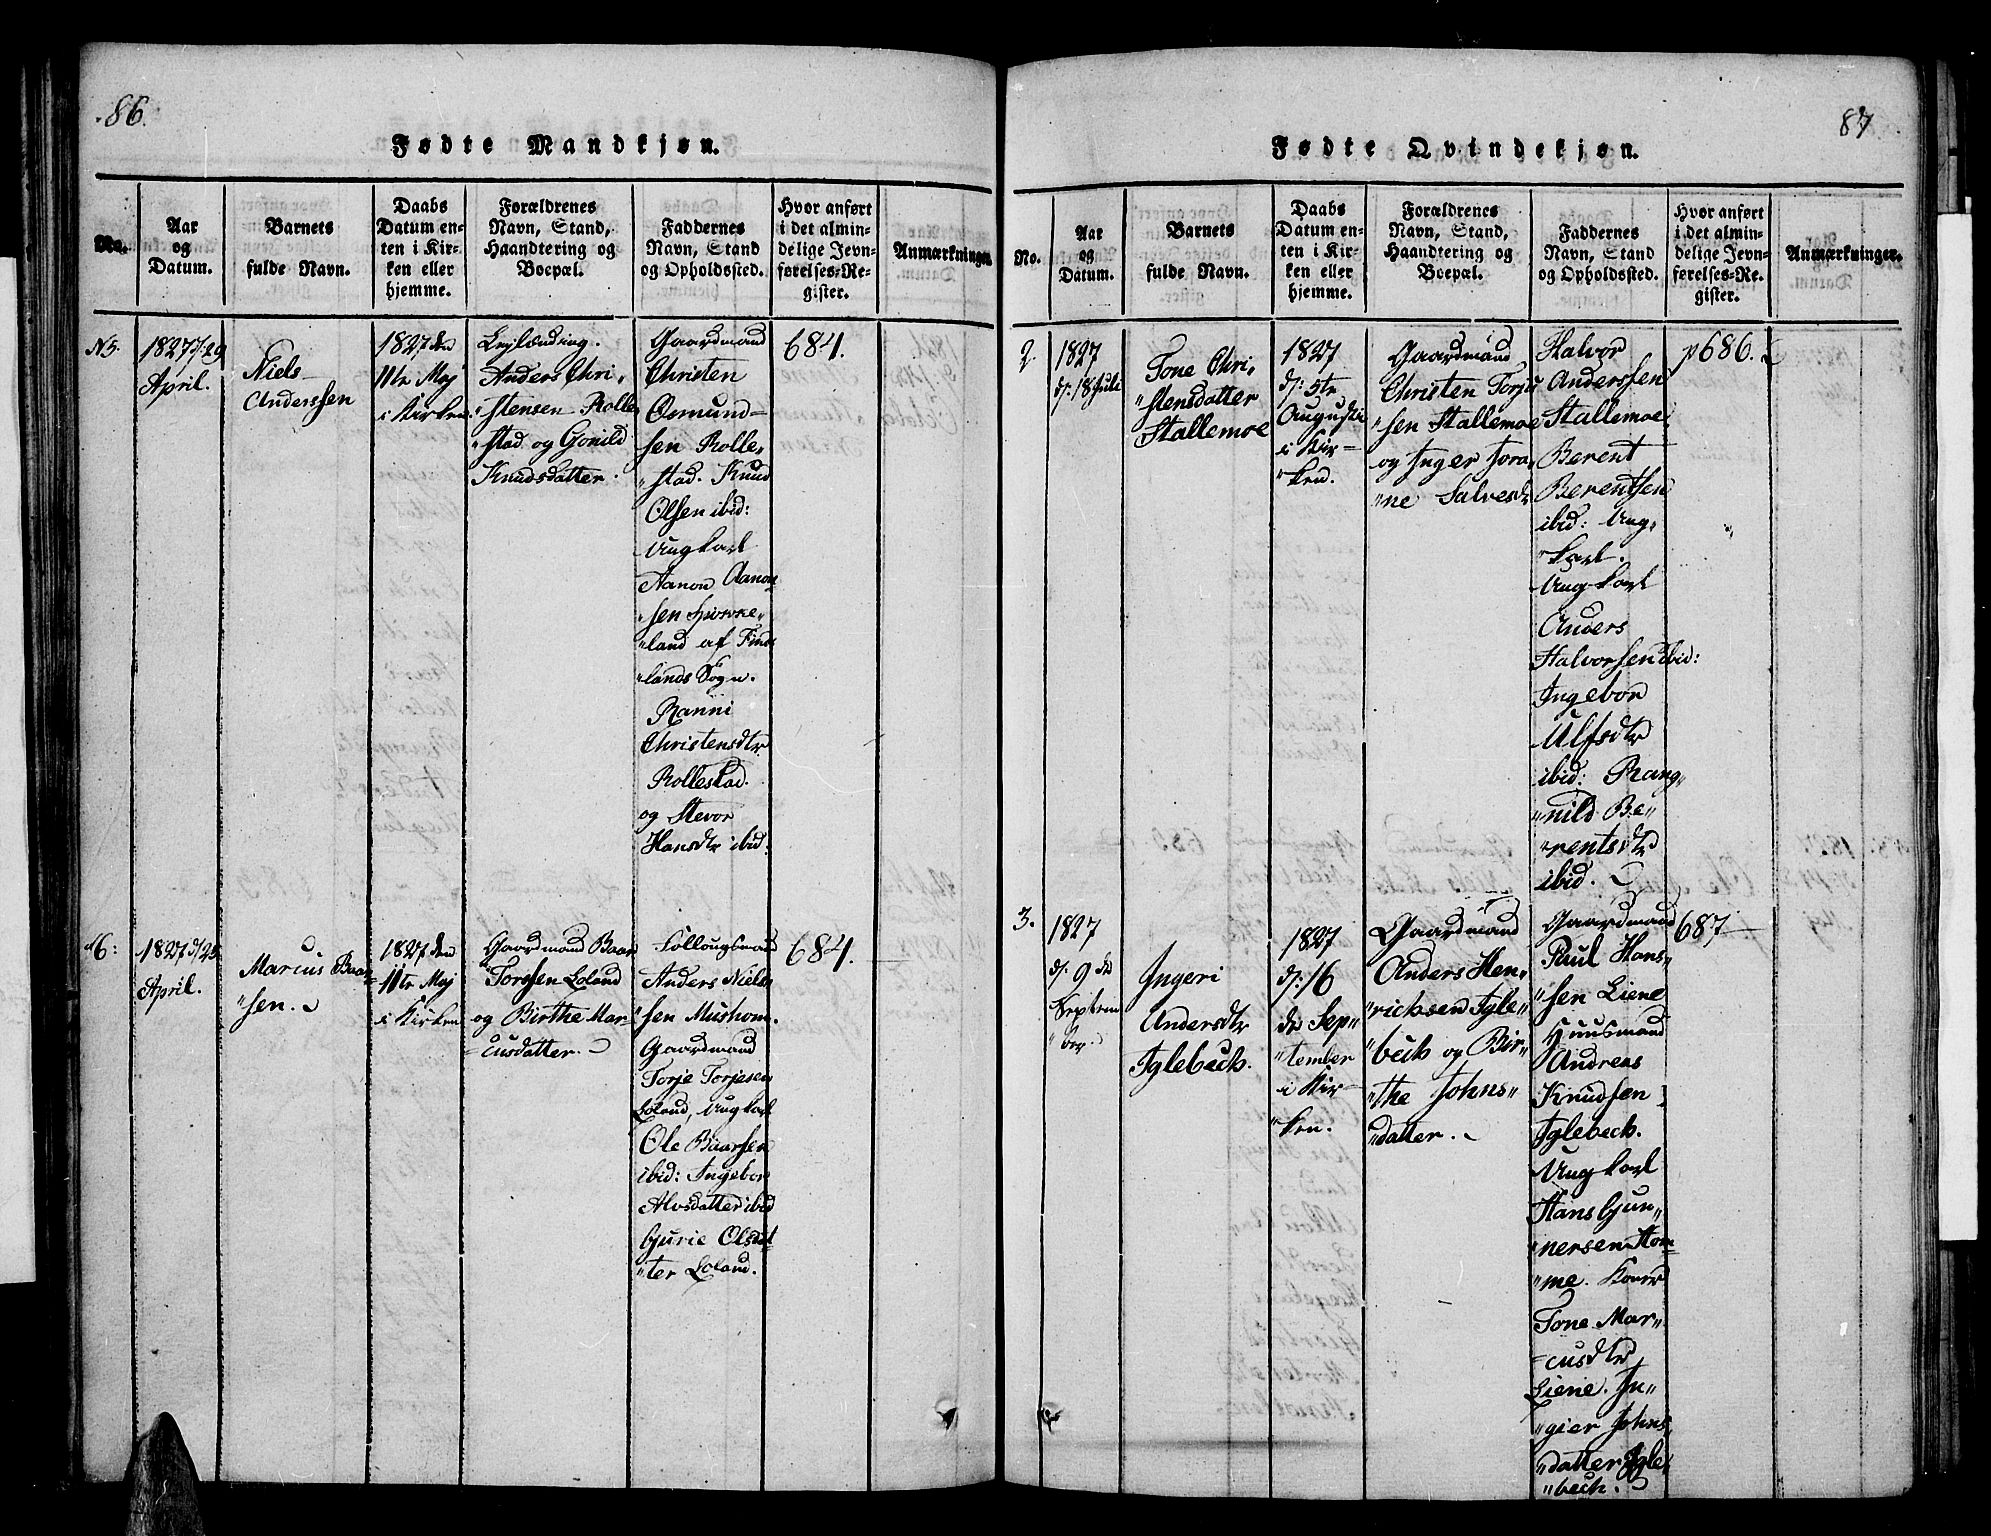 86.
Fødte Mandkjøn.
No.
Aar
og
Datum.
Barnets
fulde Navn.
Daabs
Datum en-
ten i Kir-
ken eller
hjemme.
Forældrenes
Navn, Stand,
Haandtering og
Boepæl.
Faddernes
Navn, Stand
og Opholdssted.
Hvor anført
i det almin-
delige Jevn-
førelses-Re-
gister.
Anmærkninger.
N5.
1827 d: 29
April.
Niels
Anderssen
1827 den
11te Maj
i Kirken
Lejlænding
Anders Chri,
"stensen Rolle,
"stad og Gonild
Knudsdatter.
Gaardmand
Christen
Osmund-
sen Rolle,
"stad. Knud
Olsen ibid:
Ungkarl
Aanon Aanon-
"sen
"land af Find-
"lands Sogn.
Ranni
Christensdtr
Rollestad.
og Stevor
Hansdtr ibid.
684.
6:
1827 d: 25
April.
Marcius Baar-
"sen.
1827 den
11te Maj
i Kirken
Gaardmand Baar
Torgsen Loland
og Birthe Mar-
"cusdatter.
Anders Niels-
sen Mushom.
Gaardmand
Torje Torjesen
Loland, Ungkarl
Ole Baarsen
ibid: Ingebor
Alvsdatter ibid
Gjurie Olsdat-
"ter Loland.
684.
87
Fødte Qvindekjøn.
No.
Aar
og
Datum.
Barnets
fulde Navn.
Daabs
Datum en-
ten i Kir-
ken eller
hjemme.
Forældrenes
Navn, Stand,
Haandtering og
Boepæl.
Faddernes
Navn, Stand
og Opholdssted.
Hvor anført
i det almin-
delige Jevn-
førelses-Re-
gister.
Anmærkninger.
2.
1827
d: 18 Juli
Tone Chri,
"stensdatter
Stallemoe
1827
d: 5te
Augusti
i Kir-
"ken.
Gaardmand
Christen Torju
"sen Stallemoe
og Inger Jora,
"ne Salvesdtr
Halvor
Anderssen
Stallemoe.
Berent
Berentsen
ibid: Ung,
"karl.
Ungkarl
Anders
Halvorsen ibid:
Ingebor
Ulfsdtr
ibid: Rang,
"nild Be"
"rentsdtr
ibid.
p686.
3.
1827
d: 9de
Septem
"ber.
Ingeri
Andersdtr
Iglebech.
1827
d: 16
de Sep"
"tember
i Kir-
"ken.
Gaardmand
Anders Hen"
"richsen Igle"
bech og Bir"
"the Johns"
"datter.
Gaardmand
Paul Hans"
"sen Liene
Huusmand
Andreas
Knudsen
Iglebech.
Ungkarl
Hans Gjun"
"nersen Hom-
"me. Kone
Tone Mar"
"cusdtr
Liene. In"
"gier Johns
"datter Igle"
"bech.
687